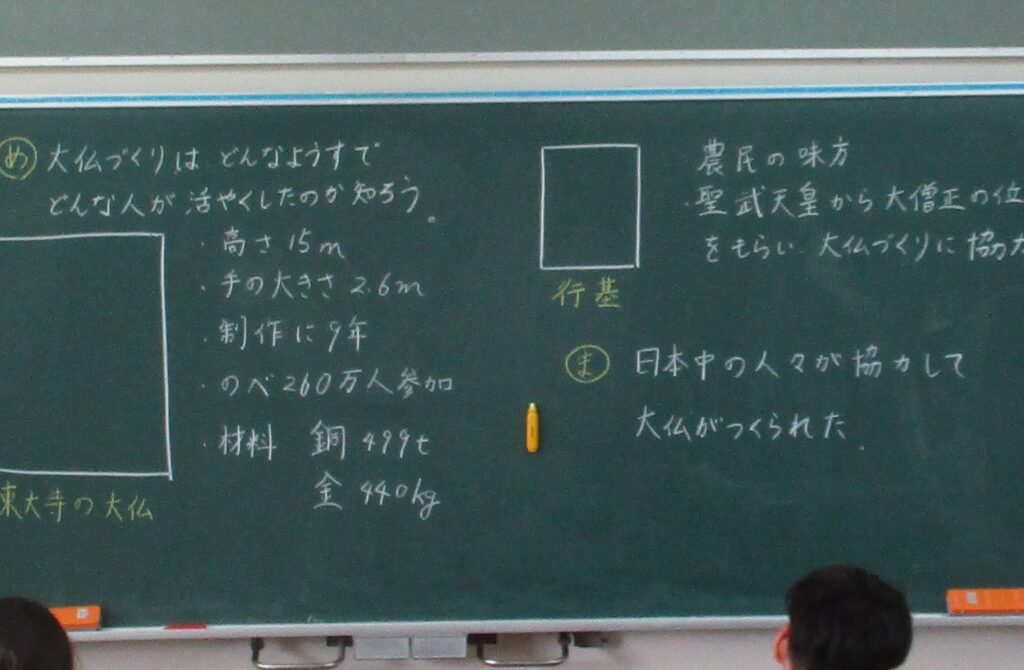 め 大仏づくりは どんなようすで
どんな人が 活やくしたのか 知ろう。
・高さ 15m
・手の大きさ 2.6m
・制作に 9年
・のべ 260万人参加
・材料 銅 499t
金 440kg
東大寺の大仏
農民の味方
・聖武天皇から大僧正の位
をもらい 大仏づくりに 協力
行基
ま 日本中の人々が 協力して
大仏がつくられた.